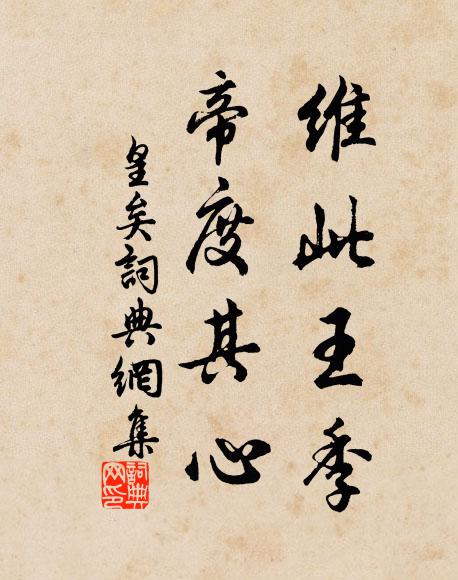 維此王季
帝度其心
皇矣詞典網集
詞典
网印